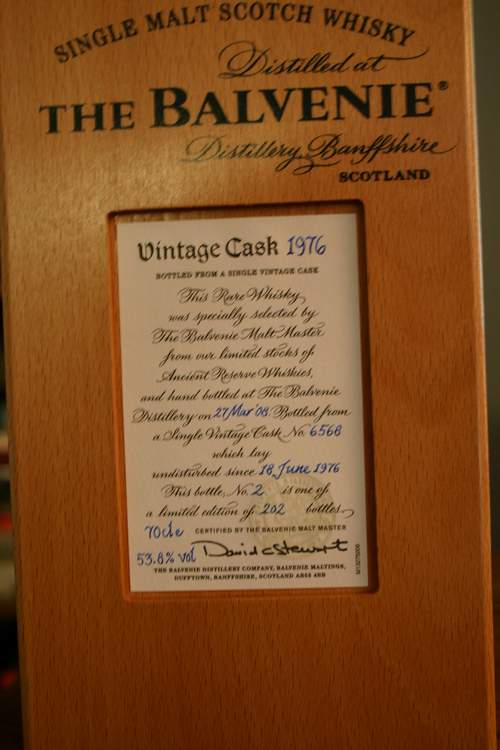 SINGLE MALT SCOTCH WHISKY
Distilled at
THE BALVENIE®
Distillery, Banffshire
SCOTLAND
Vintage Cask 1976
BOTTLED FROM A SINGLE VINTAGE CASK
This Rare Whisky
was specially selected by
The Balvenie Malt Master
from our limited stocks of
Ancient Reserve Whiskies,
and hand bottled at The Balvenie
Distillery on 27 Mar '08. Bottled from
a Single Vintage Cask No. 6568
which lay
undisturbed since 18 June 1976
This bottle, No. 2 is one of
a limited edition of 202 bottles.
70cle CERTIFIED BY THE BALVENIE MALT MASTER
53.8% vol David C Stewart
THE BALVENIE DISTILLERY COMPANY, BALVENIE MALTINGS,
DUFFTOWN, BANFFSHIRE, SCOTLAND AB55 4BB